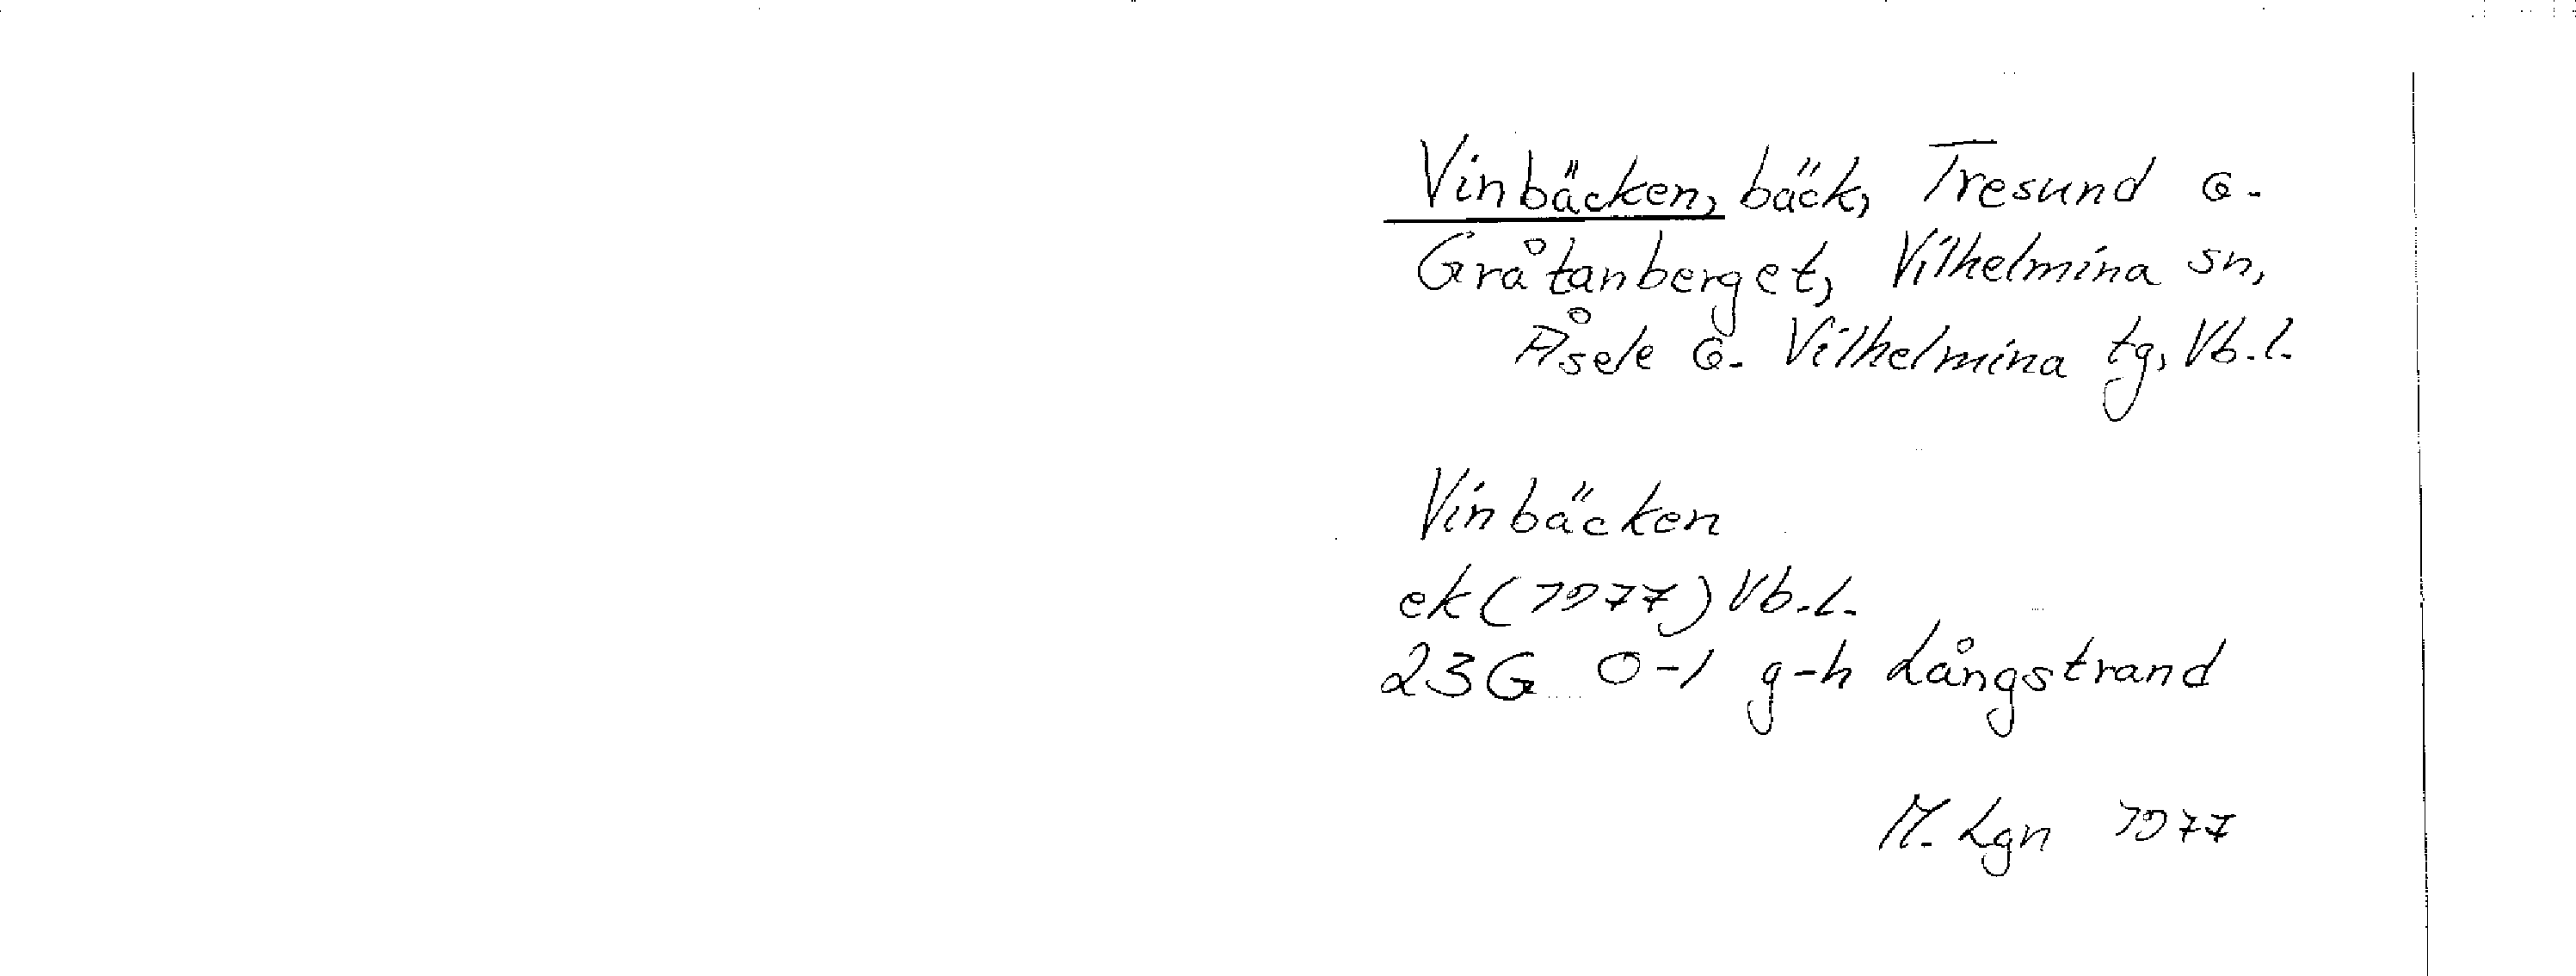 Vinbäcken, bäck, Tresund o.
Gråtanberget, Vilhelmina sn,
Åsele o. Vilhelmina tg, Vb.l.
Vinbäcken
ek (1977) Vb.l.
23G 0-1 g-h Långstrand
M. Lgn 1977